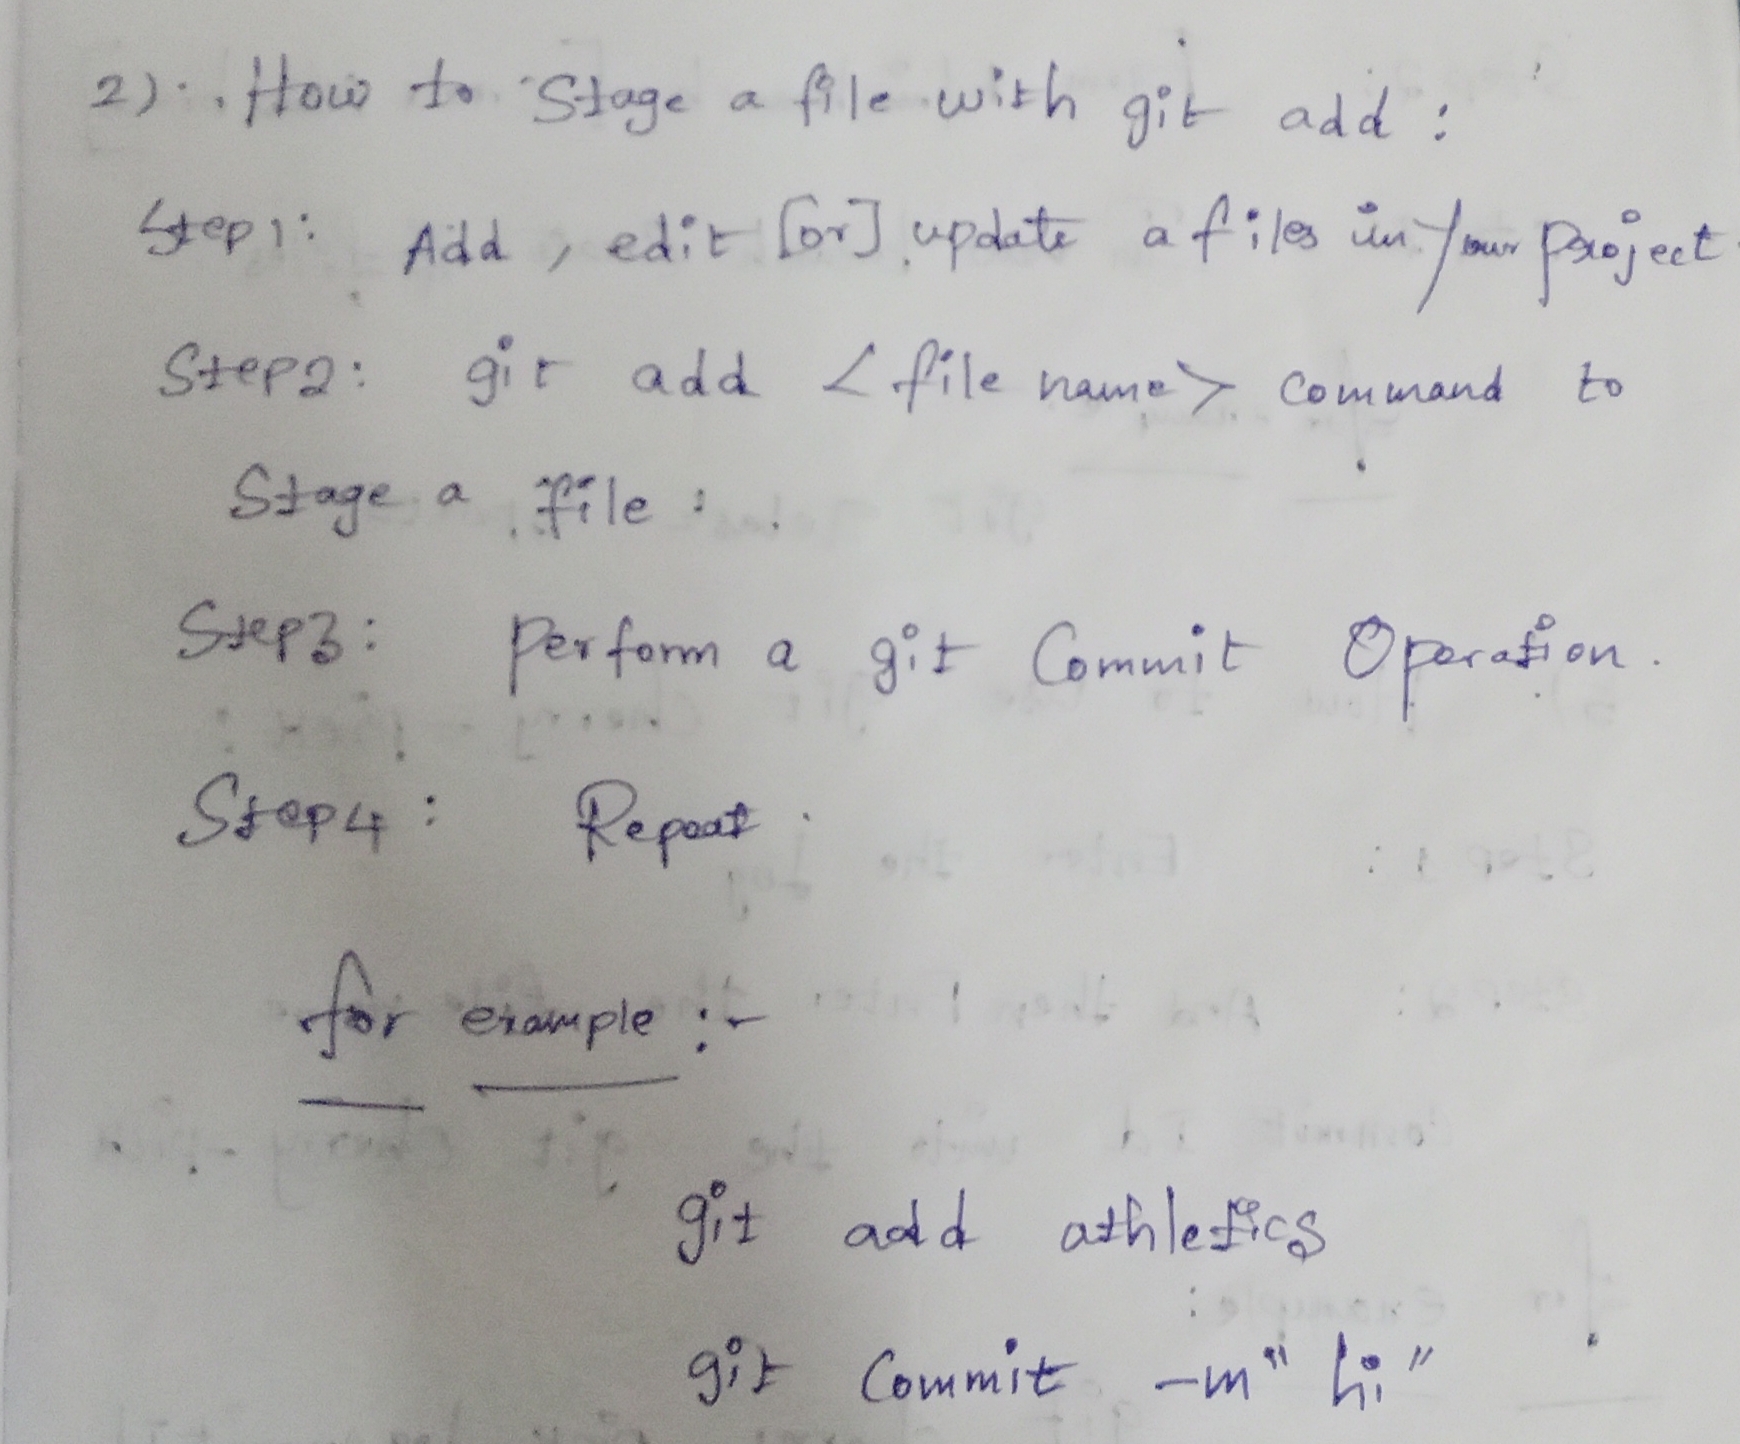 2). How to Stage a file with git add :
Step1: Add, edit [or] update a files in your project.
Step2: git add <file name> command to
Stage a file :
Step3: perform a git Commit Operation.
Step4: Repeat.
for example :-
git add athletics
git Commit -m "hi"